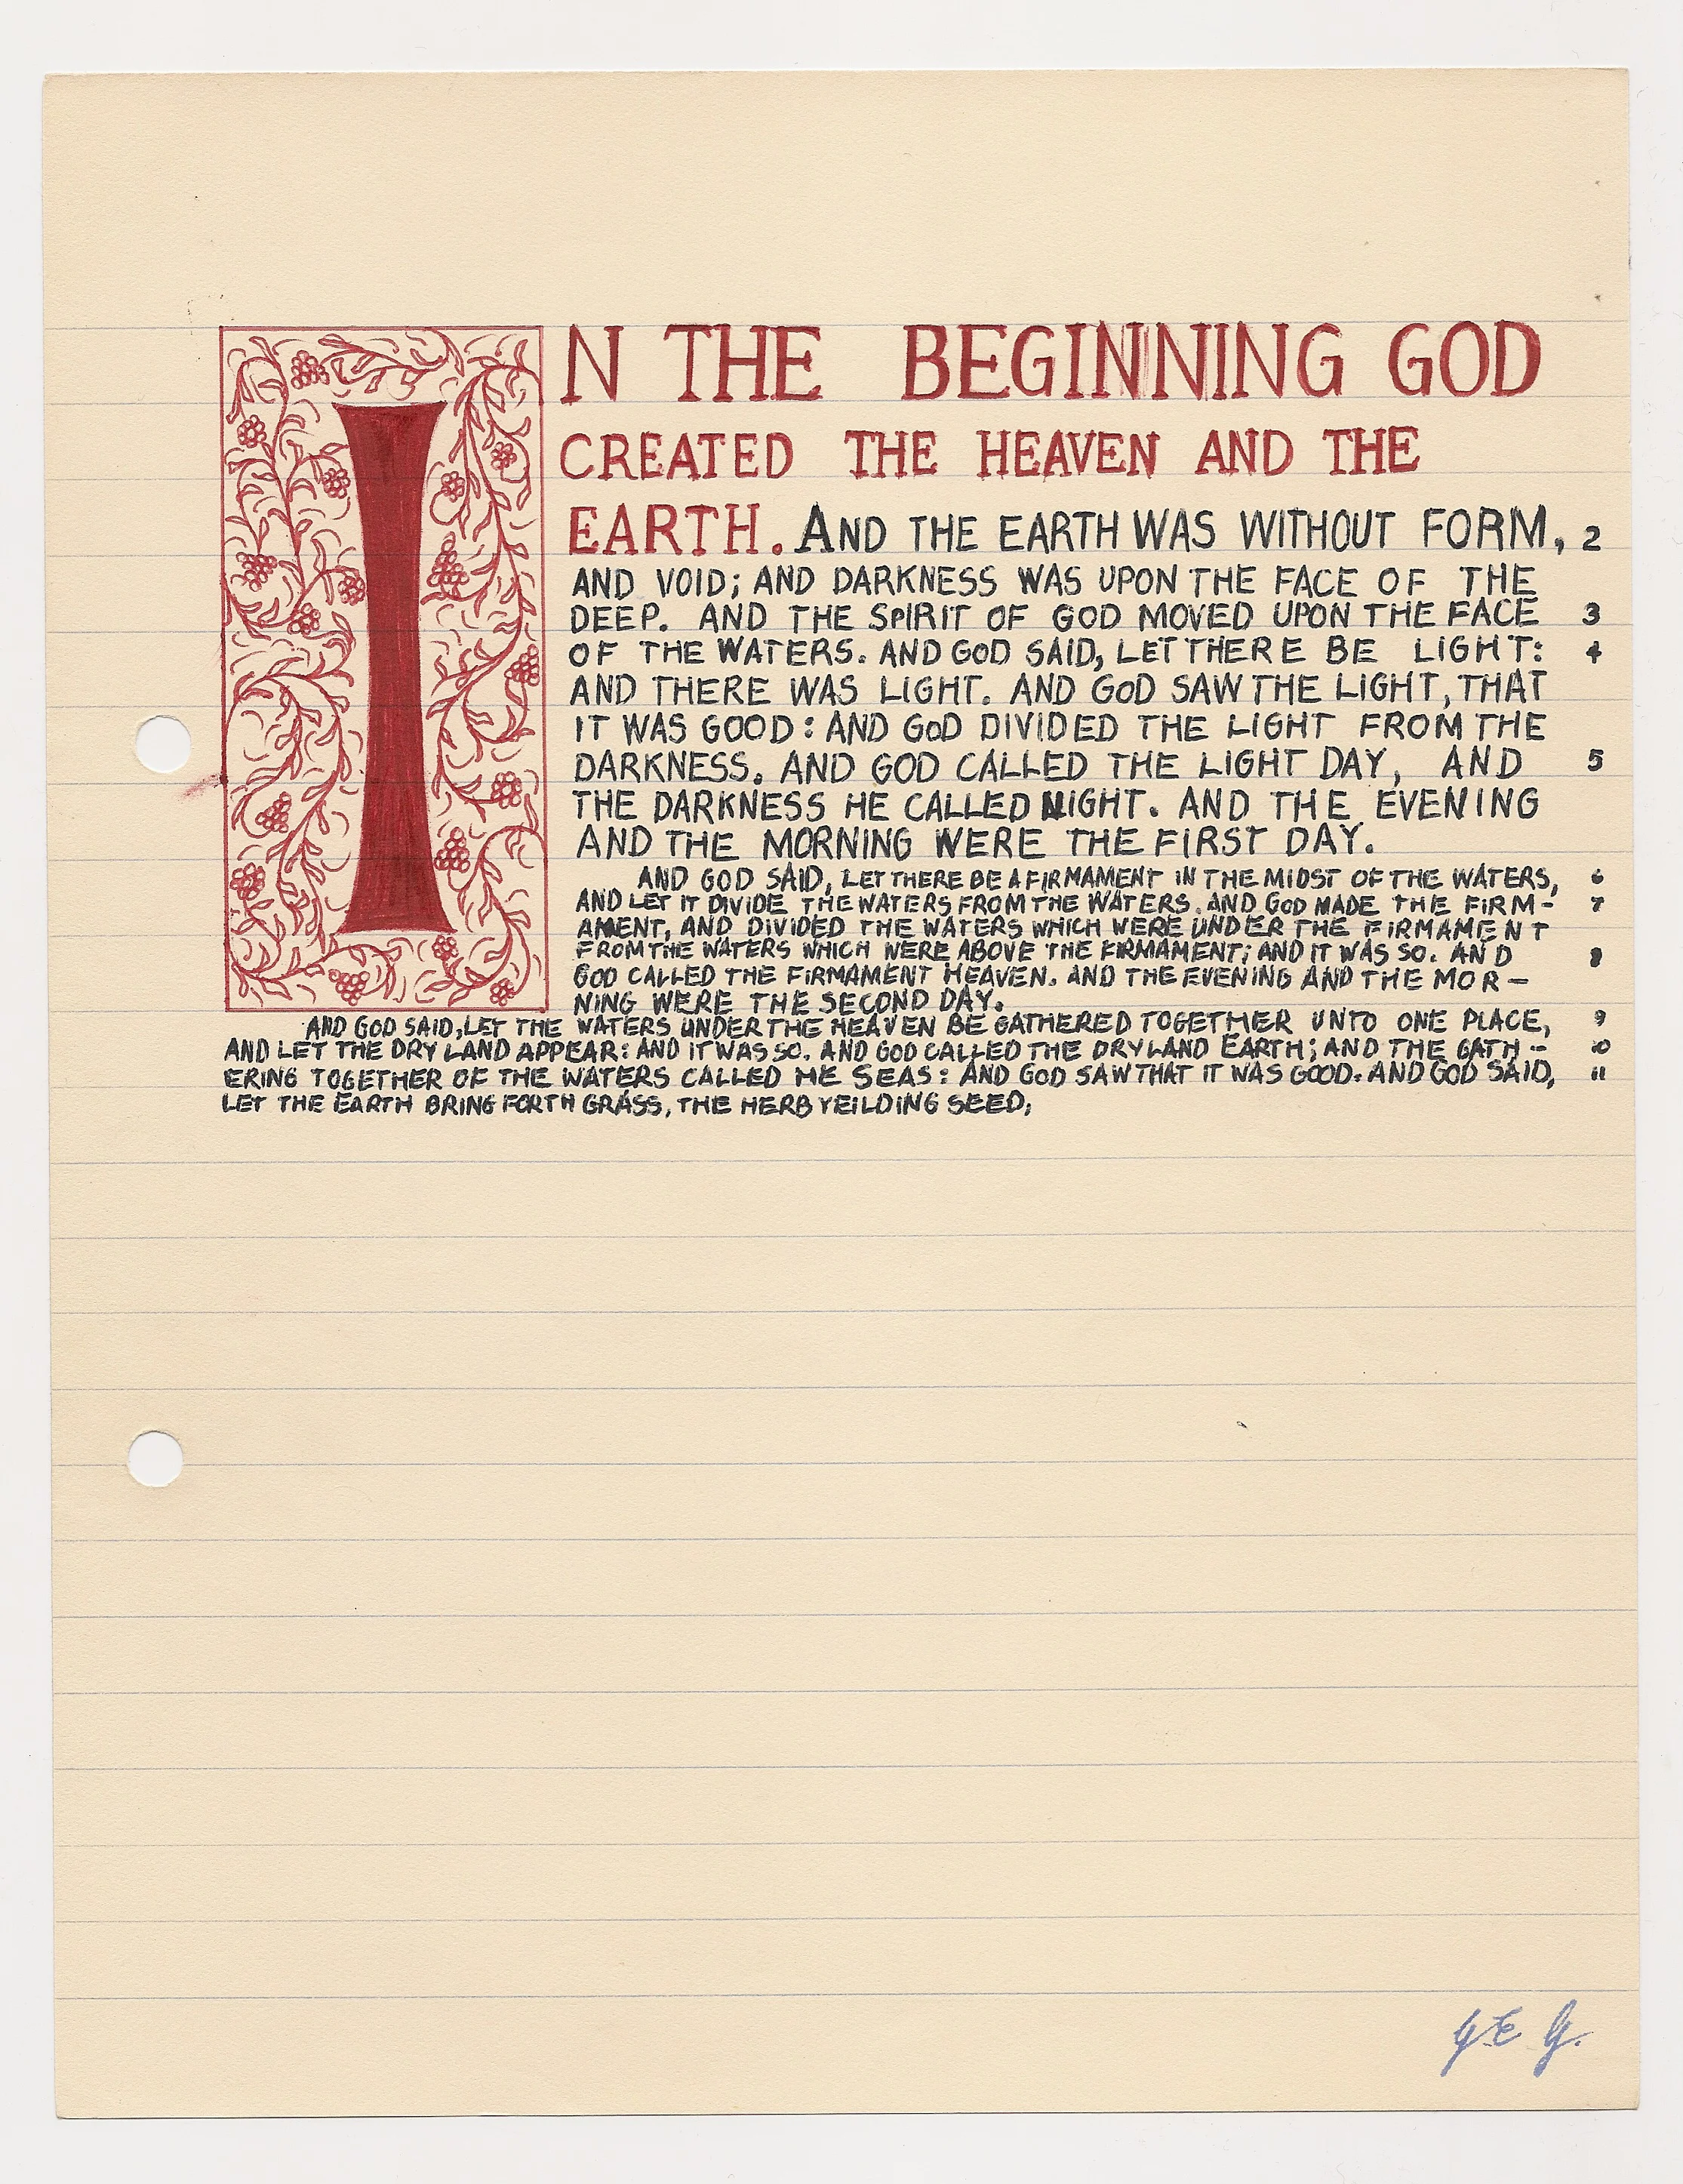 IN THE BEGINNING GOD
CREATED THE HEAVEN AND THE
EARTH. AND THE EARTH WAS WITHOUT FORM, 2
AND VOID; AND DARKNESS WAS UPON THE FACE OF THE
DEEP. AND THE SPIRIT OF GOD MOVED UPON THE FACE 3
OF THE WATERS. AND GOD SAID, LET THERE BE LIGHT: 4
AND THERE WAS LIGHT. AND GOD SAW THE LIGHT, THAT
IT WAS GOOD: AND GOD DIVIDED THE LIGHT FROM THE
DARKNESS. AND GOD CALLED THE LIGHT DAY, AND 5
THE DARKNESS HE CALLED NIGHT. AND THE EVENING
AND THE MORNING WERE THE FIRST DAY.
AND GOD SAID, LET THERE BE A FIRMAMENT IN THE MIDST OF THE WATERS, 6
AND LET IT DIVIDE THE WATERS FROM THE WATERS. AND GOD MADE THE FIRM- 7
AMENT, AND DIVIDED THE WATERS WHICH WERE UNDER THE FIRMAMENT
FROM THE WATERS WHICH WERE ABOVE THE FIRMAMENT; AND IT WAS SO. AND 8
GOD CALLED THE FIRMAMENT HEAVEN. AND THE EVENING AND THE MOR-
NING WERE THE SECOND DAY.
AND GOD SAID, LET THE WATERS UNDER THE HEAVEN BE GATHERED TOGETHER UNTO ONE PLACE, 9
AND LET THE DRY LAND APPEAR: AND IT WAS SO. AND GOD CALLED THE DRY LAND EARTH; AND THE GATH- 10
ERING TOGETHER OF THE WATERS CALLED HE SEAS: AND GOD SAW THAT IT WAS GOOD. AND GOD SAID, 11
LET THE EARTH BRING FORTH GRASS, THE HERB YEILDING SEED;